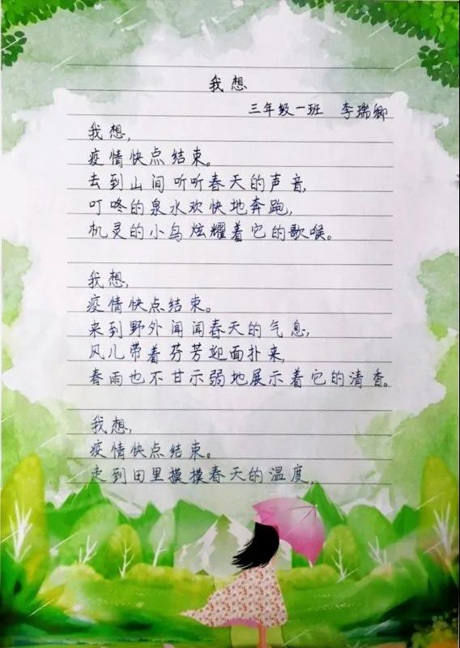 我想
三年级一班 李瑞卿
我想，
疫情快点结束。
去到山间听听春天的声音，
叮咚的泉水欢快地奔跑，
机灵的小鸟炫耀着它的歌喉。
我想，
疫情快点结束。
来到野外闻闻春天的气息，
风儿带着芬芳迎面扑来，
春雨也不甘示弱地展示着它的清香。
我想，
疫情快点结束。
走到田里摸摸春天的温度，